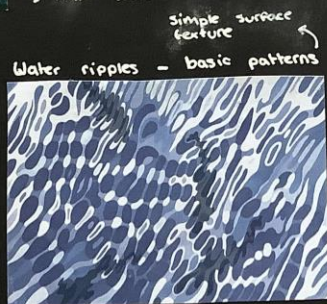 simple surface
texture
Water ripples - basic patterns